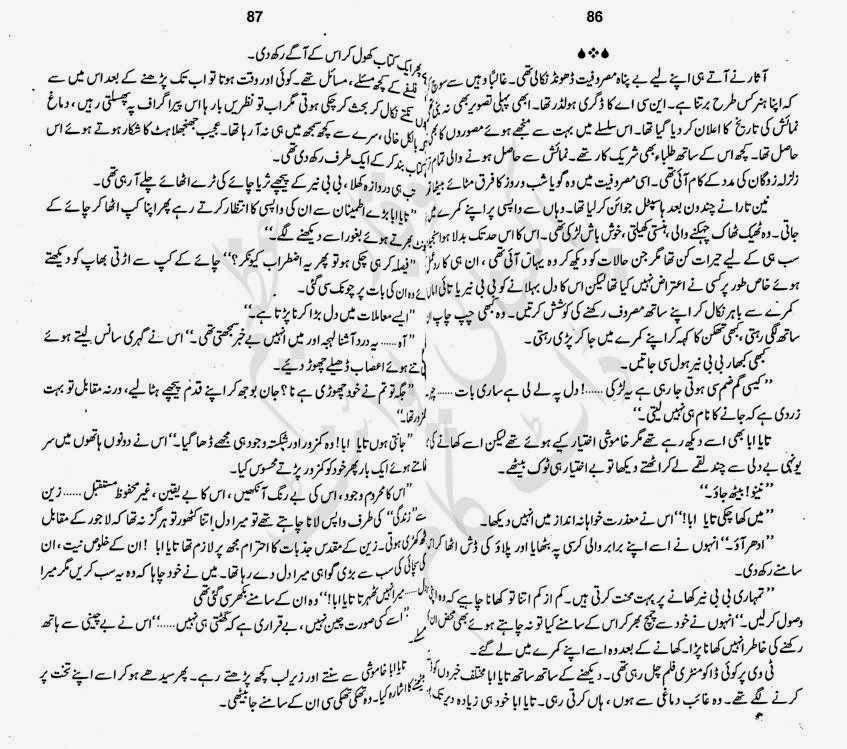 86
آثار نے آتے ہی اپنے لیے بے پناہ مصروفیت ڈھونڈ نکالی تھی۔ غالباً وہیں سے سوچ
کہ اپنا ہنر کس طرح برتنا ہے۔ این سی اے کا ڈگری ہولڈر تھا۔ ابھی پہلی تصویر بھی نہ
نمائش کی تاریخ کا اعلان کر دیا گیا تھا۔ اس سلسلے میں بہت سے منجھے ہوئے مصوروں کا
حاصل تھا۔ کچھ اس کے ساتھ طلباء بھی شریک کار تھے۔ نمائش سے حاصل ہونے والی تمام
زلزلہ زدگان کی مدد کے کام آئی تھی۔ اسی مصروفیت میں وہ گویا شب و روز کا فرق مٹائے بیٹھا
نین تارا نے چند دن بعد ہاسپٹل جوائن کر لیا تھا۔ وہاں سے واپسی پر اپنے کمرے میں
جاتی۔ وہ ٹھیک ٹھاک چہکنے والی، ہنستی کھیلتی، خوش باش لڑکی تھی۔ اس کا اس حد تک بدلا ہوا
سب ہی کے لیے حیرات کن تھا مگر جن حالات کو دیکھ کر وہ یہاں آئی تھی، ان ہی کا
ہوئے خاص طور پر کسی نے اعتراض نہیں کیا تھا لیکن اس کا دل بہلانے کو بی بی نیر یا تائی اماں
کمرے سے باہر نکال کر اپنے ساتھ مصروف رکھنے کی کوشش کرتیں۔ وہ بھی چپ چاپ
ساتھ لگی رہتی، کبھی تھکن کا کہہ کر اپنے کمرے میں جا کر پڑی رہتی۔
کبھی کبھار بی بی نیر ہول سی جاتیں۔
’’کیسی گم ضم سی ہوتی جا رہی ہے یہ لڑکی ......! دل پہ لے لی ہے ساری بات ......
زردی ہے کہ جانے کا نام ہی نہیں لیتی۔‘‘
تایا ابا بھی اسے دیکھ رہے تھے مگر خاموشی اختیار کیے ہوئے تھے لیکن اسے کھانے کی
یونہی بے دلی سے چند لقمے لے کر اٹھتے دیکھا تو بے اختیار ہی ٹوک بیٹھے۔
’’نینو! بیٹھ جاؤ۔‘‘
’’میں کھا چکی تایا ابا!‘‘ اس نے معذرت خواہانہ انداز میں انہیں دیکھا۔
’’ادھر آؤ۔‘‘ انہوں نے اسے اپنے برابر والی کرسی پہ بٹھایا اور پلاؤ کی ڈش اٹھا کر
سامنے رکھ دی۔
’’تمہاری بی بی نیر کھانے پر بہت محنت کرتی ہیں۔ کم از کم اتنا تو کھانا چاہیے کہ وہ اپنی
وصول کر لیں۔‘‘ انہوں نے خود سے چمچ بھر کر اس کے سامنے کیا تو نہ چاہتے ہوئے بھی محض ان
رکھنے کی خاطر انہیں کھانا پڑا۔ کھانے کے بعد وہ اسے اپنے کمرے میں لے گئے۔
ٹی وی پر کوئی ڈاکومنٹری فلم چل رہی تھی۔ دیکھنے کے ساتھ ساتھ تایا ابا مختلف خبروں کو
کرنے لگے تھے۔ وہ غائب دماغی سے ہوں، ہاں کرتی رہی۔ تایا ابا خود ہی زیادہ دیر تک
87
پھر ایک کتاب کھول کر اس کے آگے رکھ دی۔
فلسفے کے کچھ مسئلے، مسائل تھے۔ کوئی اور وقت ہوتا تو اب تک پڑھنے کے بعد اس میں سے
نکتے نکال کر بحث کر چکی ہوتی مگر اب تو نظریں بار ہا اس پیراگراف پہ پھسلتی رہیں، دماغ
بالکل خالی، سرے سے کچھ سمجھ میں ہی نہ آ رہا تھا۔ عجیب جھنجھلاہٹ کا شکار ہوتے ہوئے اس
کتاب بند کر کے ایک طرف رکھ دی تھی۔
تب ہی دروازہ کھلا، بی بی نیر کے پیچھے ثریا چائے کی ٹرے اٹھائے چلے آ رہی تھی۔
’’تایا ابا بڑے اطمینان سے ان کی واپسی کا انتظار کرتے رہے پھر اپنا کپ اٹھا کر چائے کے
گھونٹ بھرتے ہوئے بغور اسے دیکھنے لگے۔‘‘
’’فیصلہ کر ہی چکی ہو تو پھر یہ اضطراب کیونکر؟‘‘ چائے کے کپ سے اڑتی بھاپ کو دیکھتے
وہ ان کی بات پر چونک سی گئی۔
’’ایسے معاملات میں دل بڑا کرنا پڑتا ہے۔‘‘
’’آہ ...... یہ درد آشنا لہجہ اور میں انہیں بے خبر سمجھتی تھی۔‘‘ اس نے گہری سانس لیتے ہوئے
تنے ہوئے اعصاب ڈھیلے چھوڑ دیے۔
’’جگہ تو تم نے خود چھوڑی ہے نا؟ جان بوجھ کر اپنے قدم پیچھے ہٹا لیے، ورنہ مقابل تو بہت
کمزور تھا۔‘‘
’’جانتی ہوں تایا ابا! وہ کمزور اور شکستہ وجود ہی مجھے ڈھا گیا۔‘‘ اس نے دونوں ہاتھوں میں سر
تھامتے ہوئے ایک بار پھر خود کو کمزور پڑتے محسوس کیا۔
’’اس کا محروم وجود، اس کی بے رنگ آنکھیں، اس کا بے یقین، غیر محفوظ مستقبل ...... زین
اسے ’’زندگی‘‘ کی طرف واپس لانا چاہتے تھے تو میرا دل اتنا کٹھور تو ہرگز نہ تھا کہ لاجور کے مقابل
کھڑی ہوتی۔ زین کے مقدس جذبات کا احترام مجھ پر لازم تھا تایا ابا ! ان کے خلوص نیت، ان
کی سچائی کی سب سے بڑی گواہی میرا دل دے رہا تھا۔ میں نے خود چاہا کہ وہ یہ سب کریں مگر میرا
دل ...... میرا نہیں ٹھہرتا تایا ابا!‘‘ وہ ان کے سامنے بکھر سی گئی تھی
’’اسے کسی صورت چین نہیں، بے قراری ہے کہ گھٹتی ہی نہیں ......‘‘ اس نے بے چینی سے ہاتھ
تایا ابا خاموشی سے سنتے اور زیر لب کچھ پڑھتے رہے۔ پھر سیدھے ہو کر اسے اپنے تخت پر
بیٹھنے کا اشارہ کیا۔ وہ تھکی تھکی سی ان کے سامنے جا بیٹھی۔